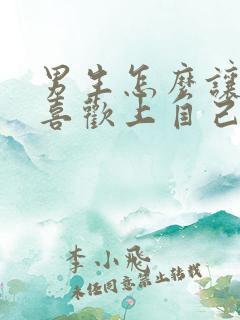 男生怎麼讓
喜歡上自己
李小飛
未經同意禁止转載